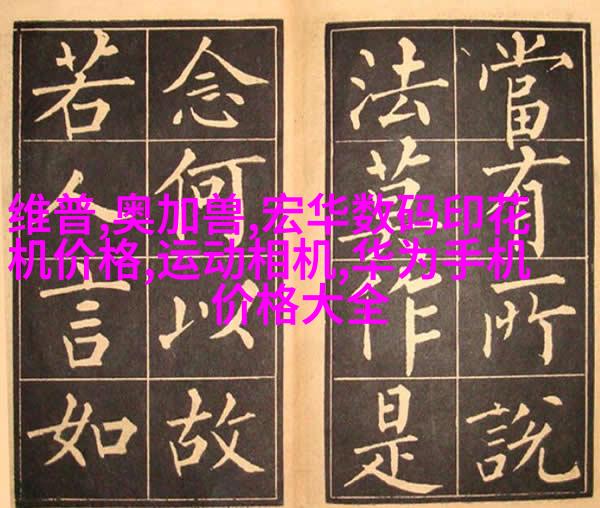 當有所說
法莫作是
念何以故
若人言如
维普,奥加兽,宏华数码印花
机价格,运动相机,华为手机
价格大全